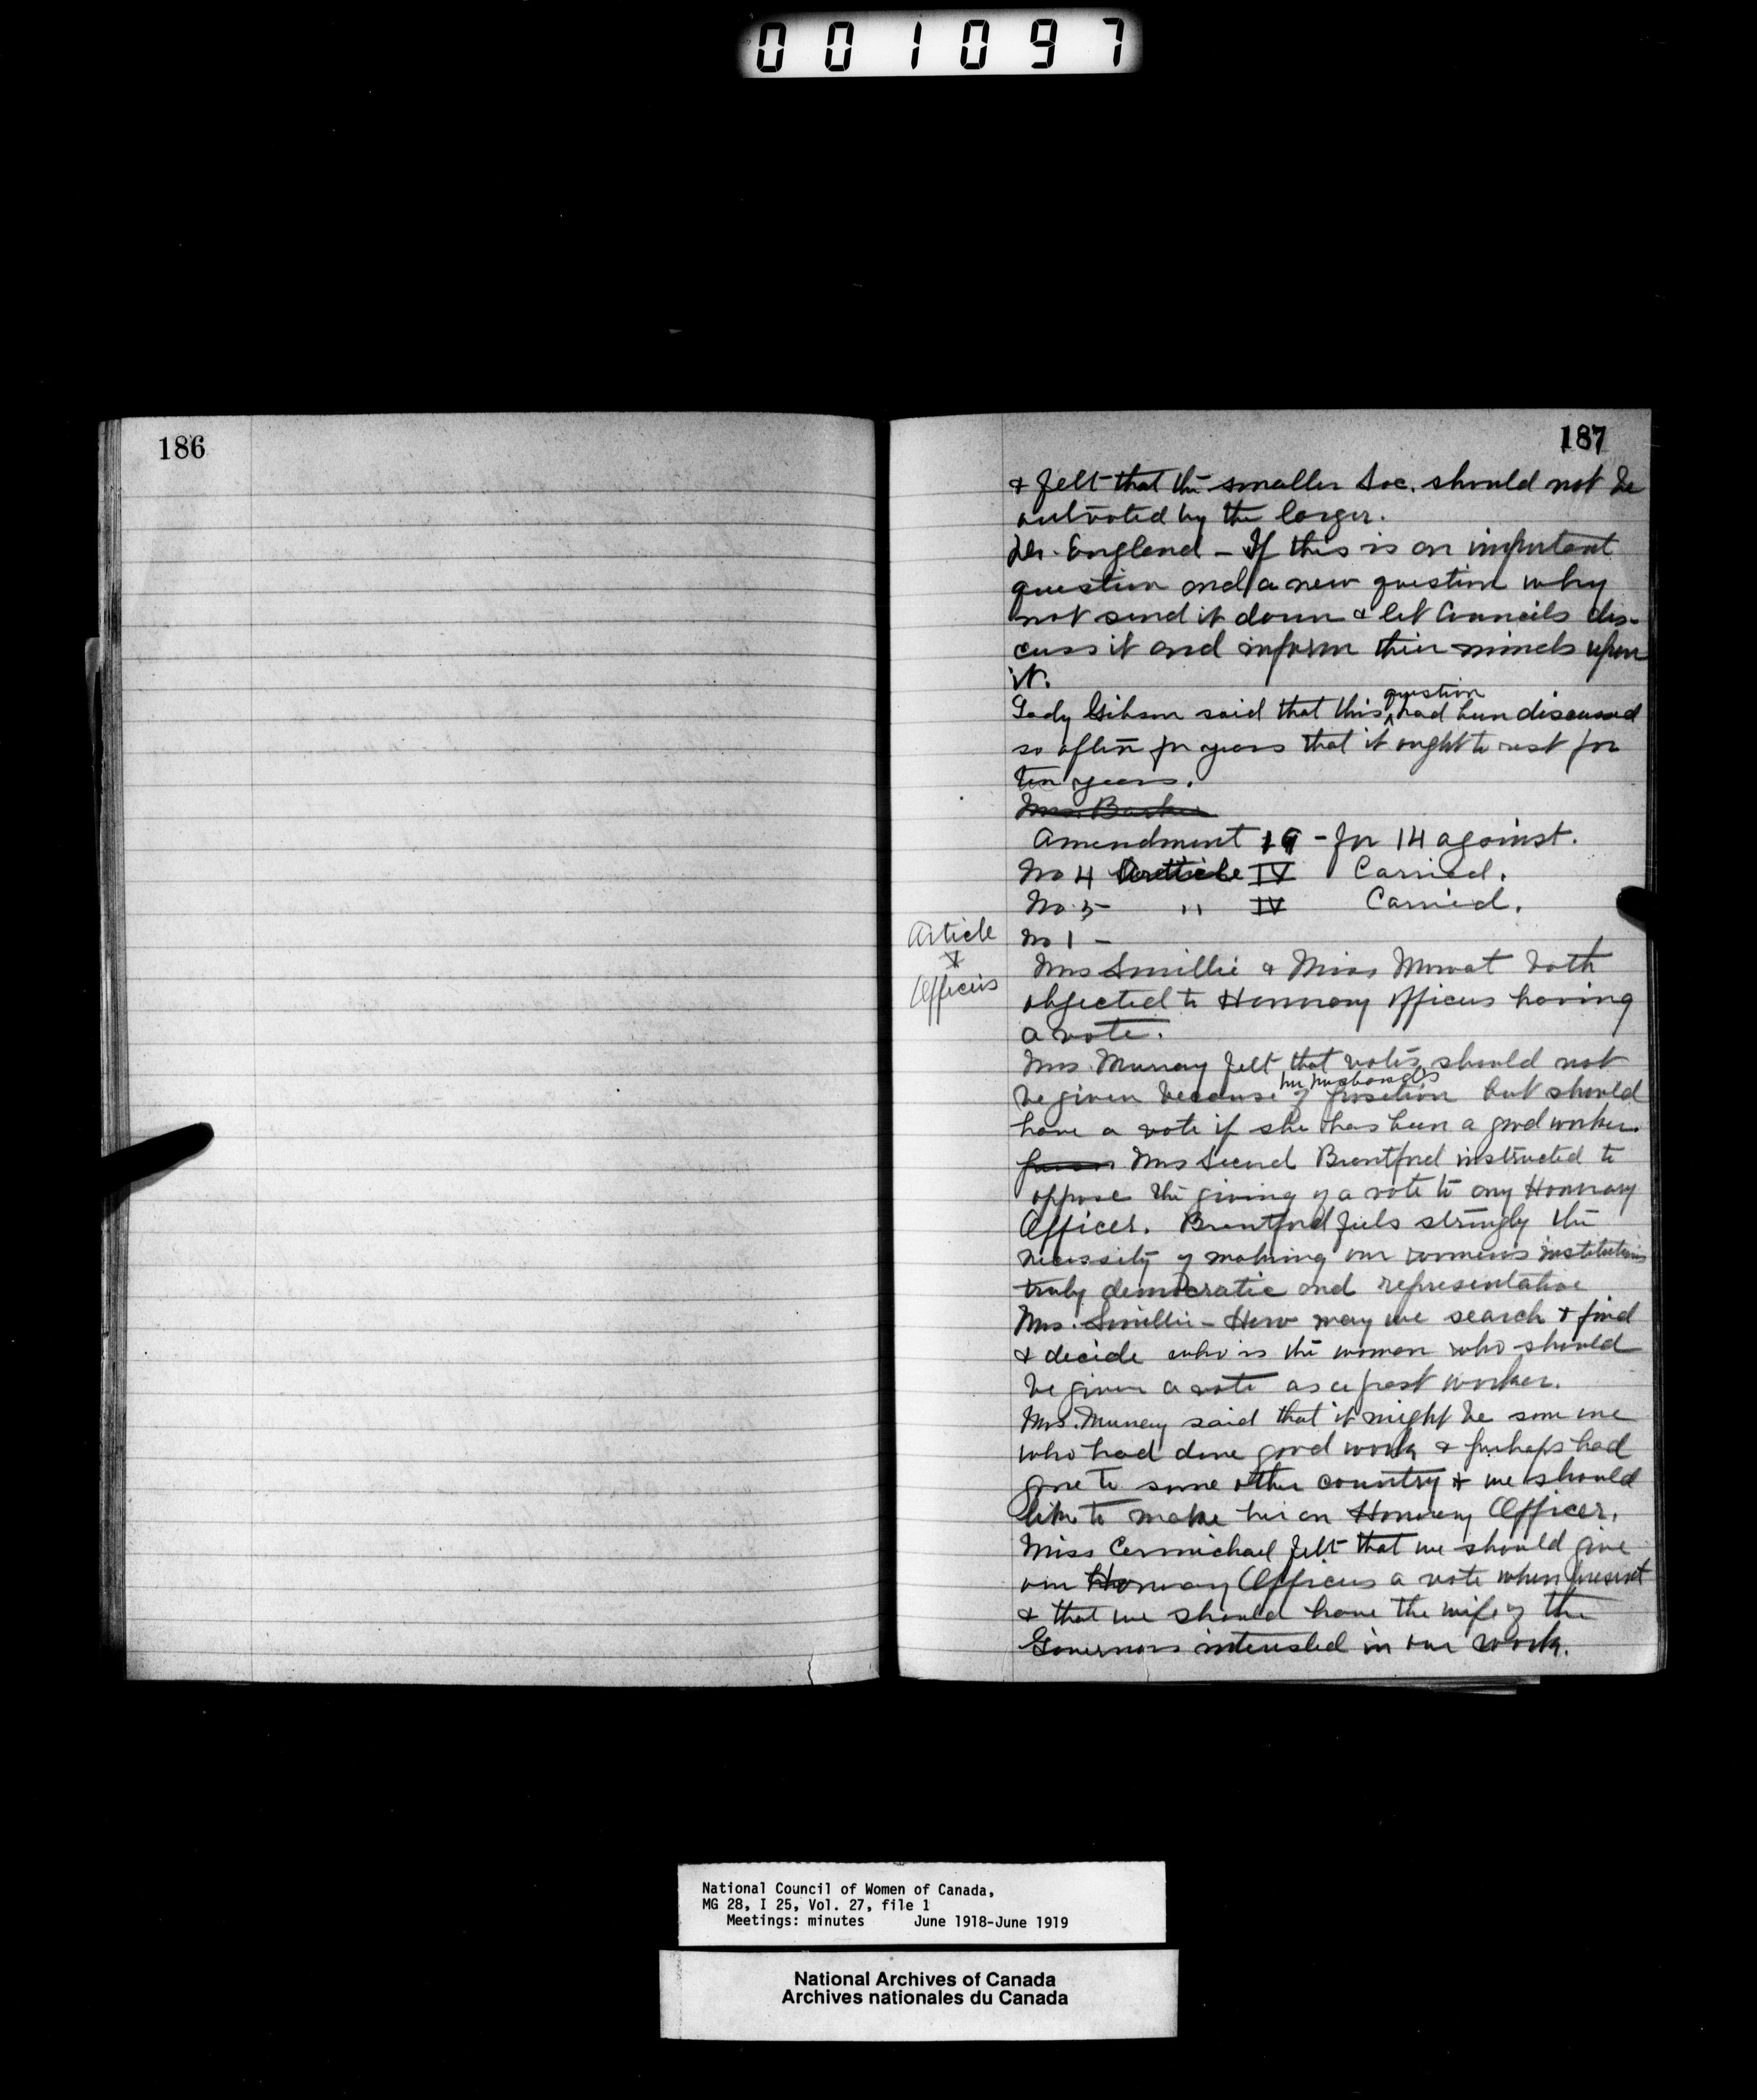 001097
186
187
& felt that the smaller Soc. should not be
outvoted by the larger.
Dr. England - If this is an important
question and a new question why
not send it down & let Councils dis-
cuss it and inform their minds upon
it.
question
Lady Gibson said that this had been discussed
so often for years that it ought to rest for
ten years.
Mrs. Barker
Amendment 19 - for 14 against.
No 4 Article IV Carried.
No. 5 " IV Carried.
Article
V
Officers
No 1 -
Mrs Smillie & Miss Mowat both
objected to Honorary Officers having
a vote.
Mrs. Murray felt that votes should not
her husband's
be given because of position but should
have a vote if she has been a good worker.
Mrs Secord Brantford instructed to
oppose the giving of a vote to any Honorary
Officer. Brantford feels strongly the
necessity of making our women's institutions
truly democratic and representative
Mrs. Smillie - How may we search & find
& decide who is the woman who should
be given a vote as a past worker.
Mrs. Murray said that it might be some one
who had done good work & perhaps had
gone to some other country & we should
like to make her an Honorary Officer.
Miss Carmichael felt that we should give
our Honorary Officers a vote when present
& that we should have the wife of the
Governors interested in our work.
National Council of Women of Canada,
MG 28, I 25, Vol. 27, file 1
Meetings: minutes June 1918-June 1919
National Archives of Canada
Archives nationales du Canada